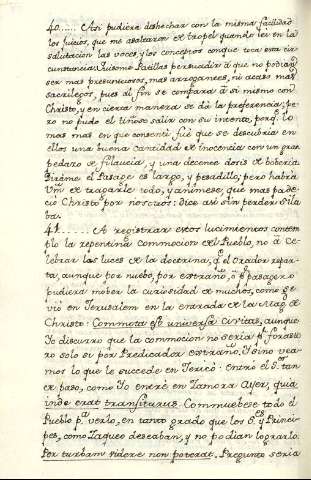 40..... Asi pudiera deshechar con la misma facilidad
los juicios, que me asaltaron de tropel quando leí en la
salutacion las voces, y los conceptos conque toca esta cir
cunstancia: Quisome Patillas persuadir a que no podian
ser mas presumtuosos, mas arrogantes, ni acaso mas
sacrilegos, pues al fin se compara a si mismo con
Christo, y en cierta manera se dà la preferencia; pe
ro no pudo el Uñoso salir con su intento, porq. lo
mas mas en que consentí fuè que se descubria en
ellos una buena cantidad de inocencia con un gran
pedazo de filaucia, y una decente dosis de boberia.
el Pasage es largo, y pesadillo, pero habrà
Vm. de tragarle todo, y animese, que mas pade-
ciò Christo por nosotros: Dice asi sin perder sila
ba.
41..... A registrar estos lucimientos contem
plo la repentina Commocion del Pueblo, no a ce-
lebrar las luces de la doctrina, q. el Orador repar-
ta, aunque por nuebo, por estraño, o pasagero
pudiera mober la curiosidad de muchos, como se
viò en Jerusalem en la entrada de la Mag. de
Christo: Commota est universa Civitas, aunque
Yo discurro que la commocion no seria pr. foraste
ro solo si por Predicador estraño. Y sino vea
mos lo que le succede en Jericò. Entrò el Sor. tan
de paso, como Yo entrè en Zamora Ayer, quia
inde erat transiturus. Commuebese todo el
Pueblo pa. verlo, en tanto grado que los Ses. y Princi-
pes, como Zaqueo deseaban, y no podian lograrlo.
Per turbam videre non poterat. Pregunto seria